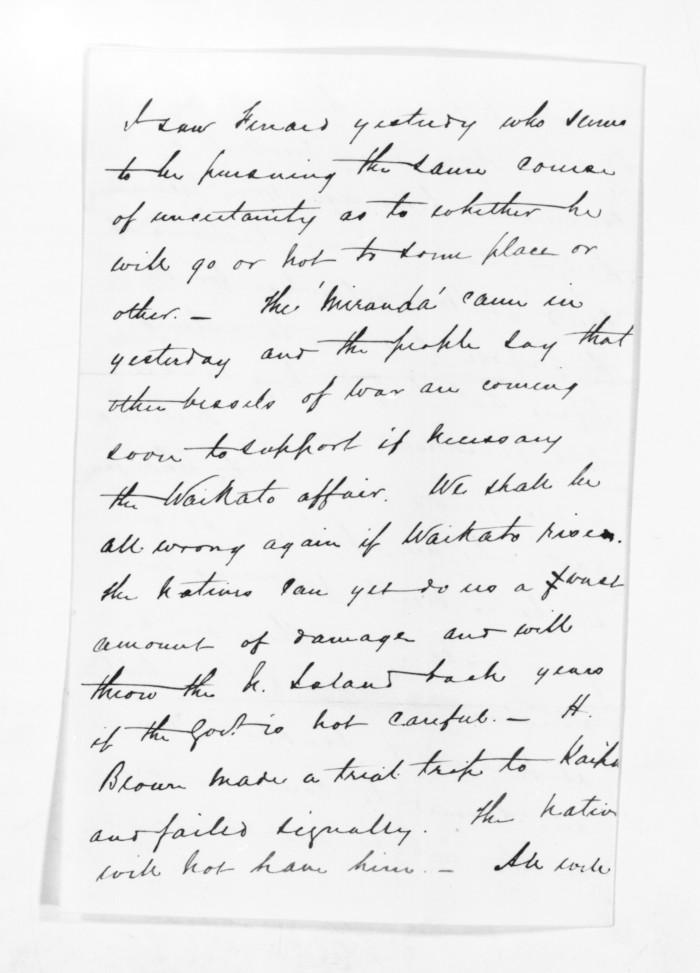 I saw Fenard yesterdy who seems
to be pursuing the same course
of uncertainty as to whether he
will go or not to some place or
other. — The 'Miranda' came in
yesterday and the people say that
other vessels of war are coming
soon to support if necessary
the Waikato affair. We shall be
all wrong again if Waikato rises.
The Natives can yet do us a vast
amount of damage and will
throw the N. Island back years
if the Govt. is not careful. — H.
Brown made a trial trip to
and failed signally. The Native
will not have him. — Ah will